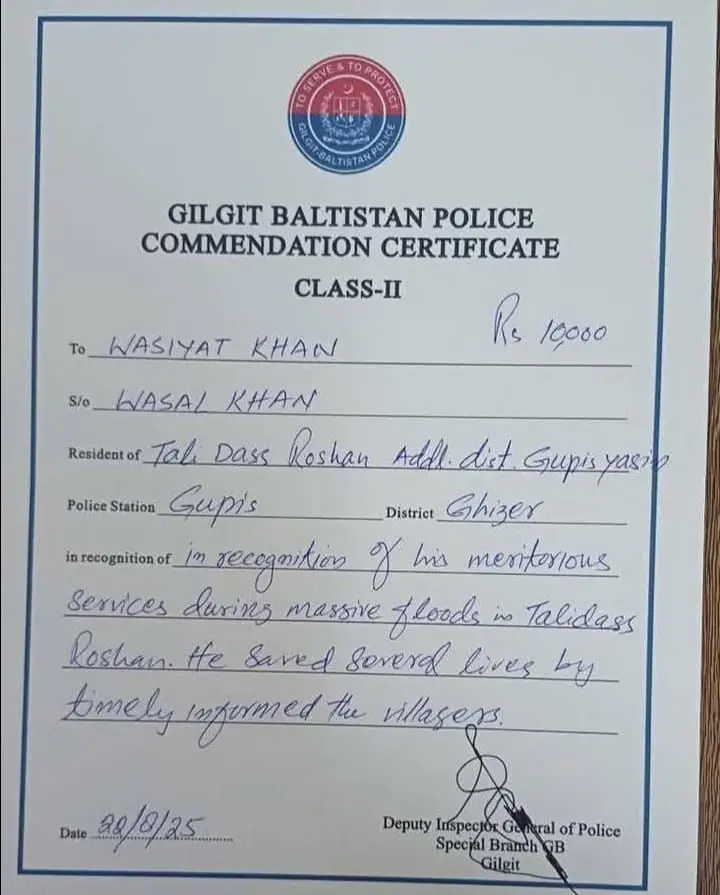 TO SERVE & TO PROTECT
GILGIT-BALTISTAN POLICE
GILGIT BALTISTAN POLICE
COMMENDATION CERTIFICATE
CLASS-II
Rs 10,000
To WASIYAT KHAN
S/o WASAL KHAN
Resident of Tali Dass Roshan Addl. dist. Gupis yasin
Police Station Gupis District Ghizer
in recognition of in recognition of his meritorious
services during massive floods in Talidass
Roshan. He saved several lives by
timely informed the villagers.
Date 22/8/25
Deputy Inspector General of Police
Special Branch GB
Gilgit